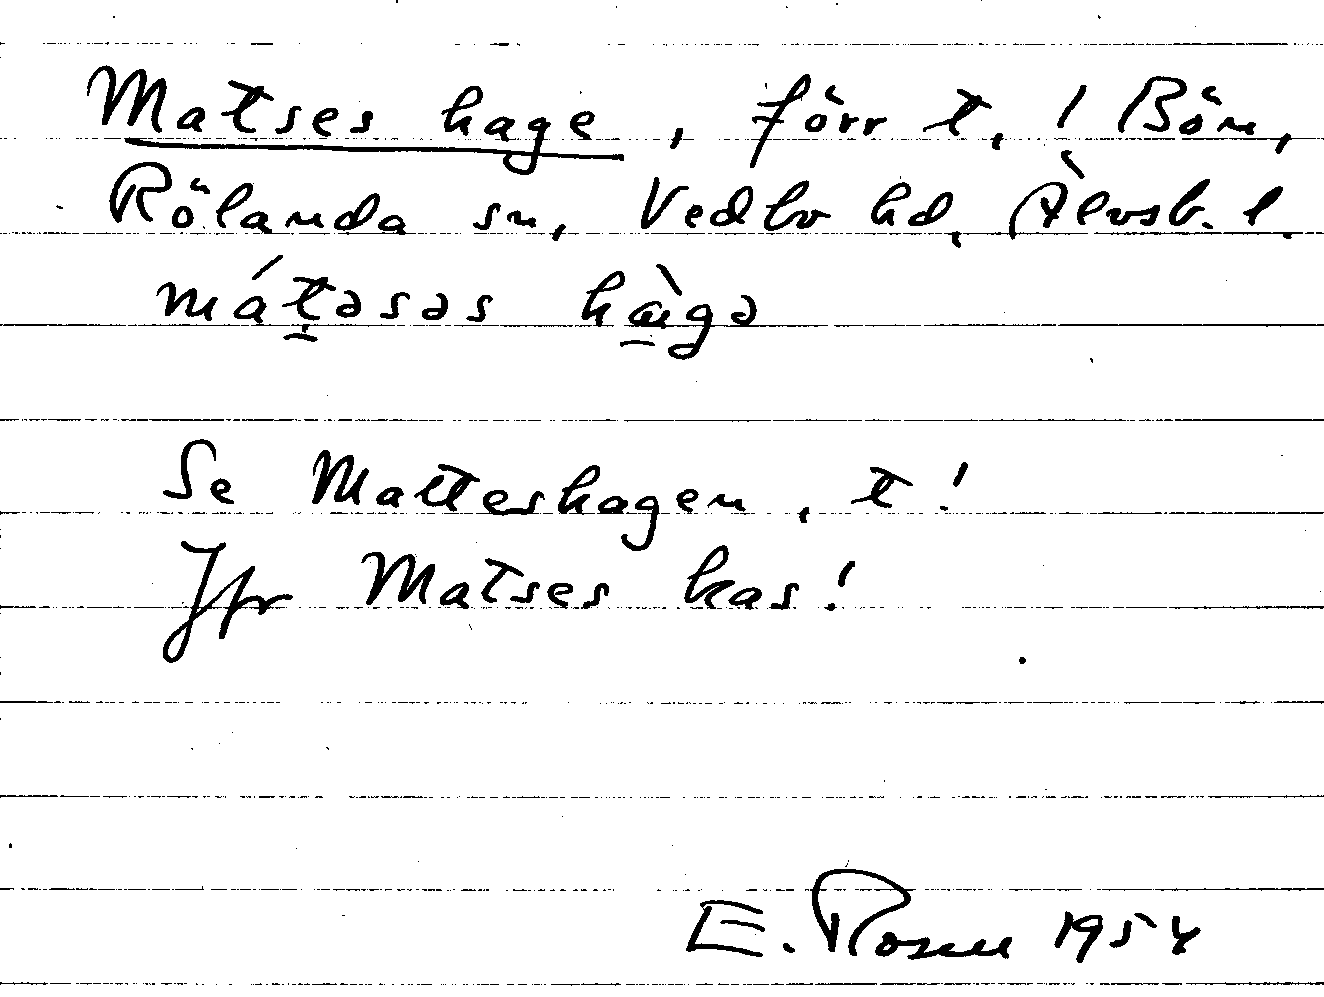 Matses hage, förr t. / Bön,
Rölanda sn, Vedbo hd, Älvsb. l.
mátəsəs hàgə
Se Matteshagen, t!
Jfr Matses kas!
E. Rosen 1954